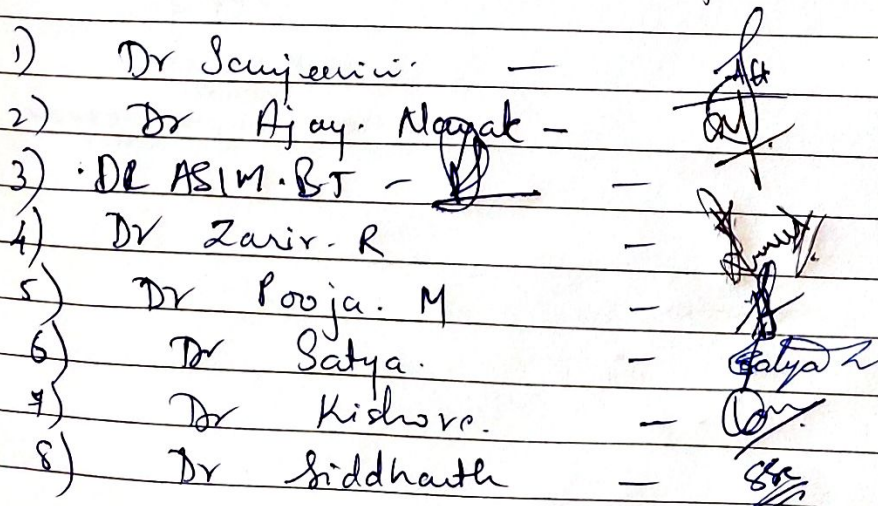 1) Dr Sanjeevini —
2) Dr Ajay. Nayak —
3) DR ASIM.BJ — —
4) Dr Zarir. R —
5) Dr Pooja. M —
6) Dr Satya. — Satya
7) Dr Kishore. —
8) Dr Siddhauth —